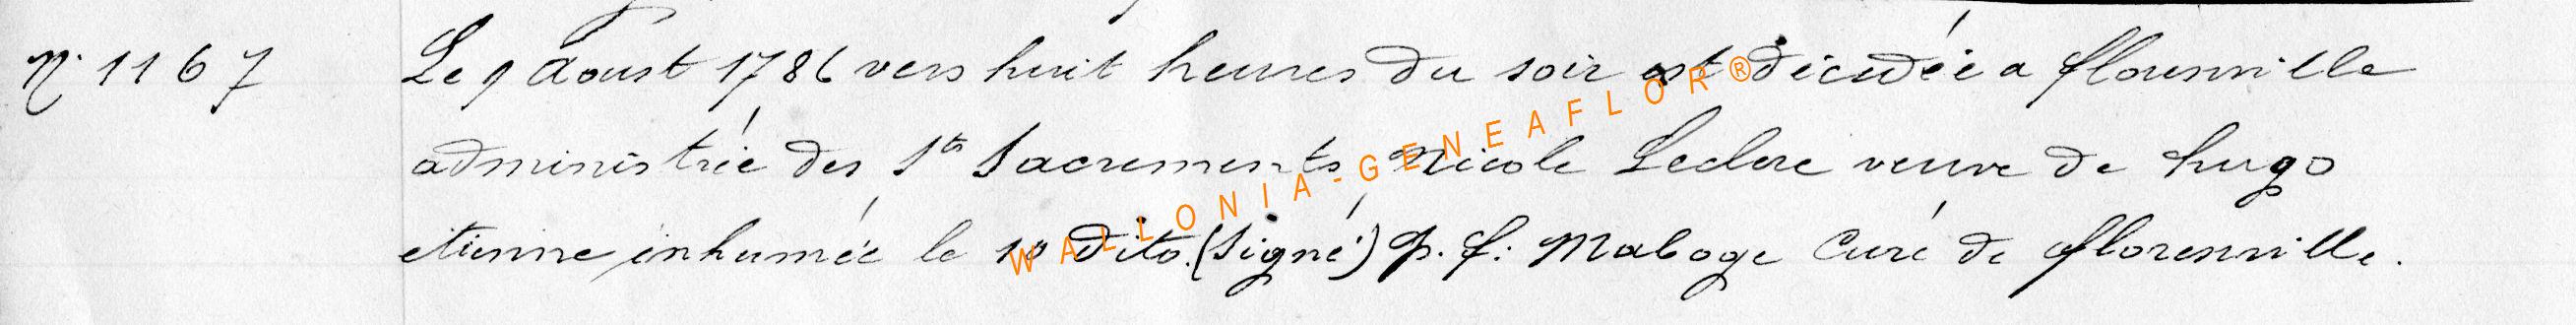 N. 1167 Le 9 Aoust 1786 vers huit heures du soir est décedée a florenville
administrée des Sts Sacrements Nicole Leclere veuve de hugo
etienne inhumée le 10 dito. (Signé) p. f: Maboge Curé de florenville.
WALLONIA-GENEAFLOR®